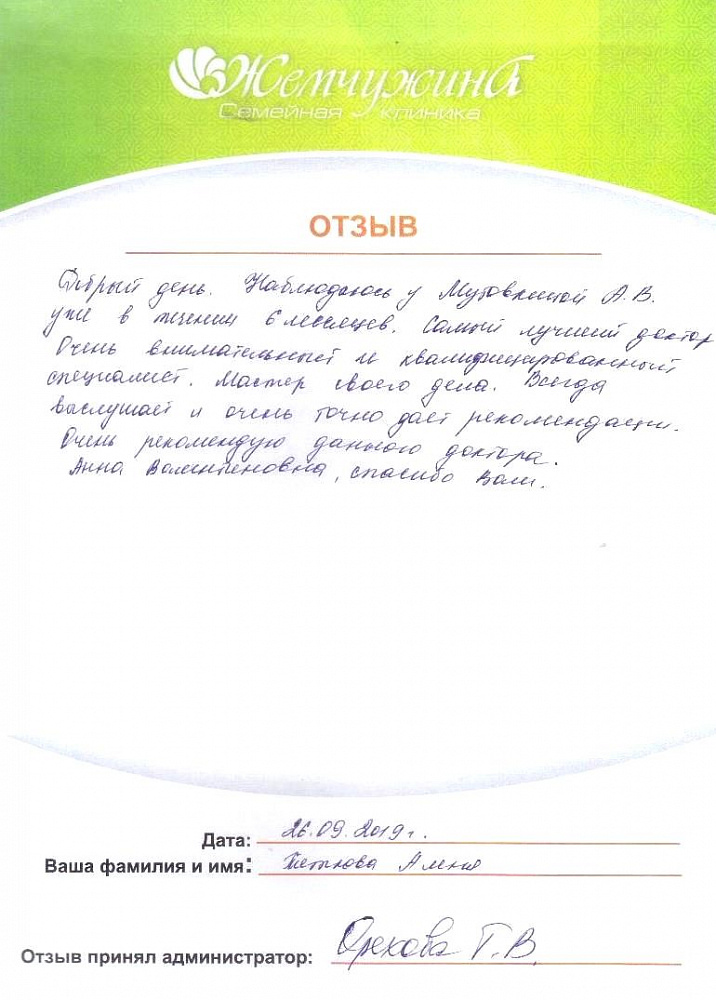 Жемчужина
Семейная клиника
ОТЗЫВ
Добрый день. Наблюдаюсь у Мутовкиной А.В.
уже в течении 6 месяцев. Самый лучший доктор
Очень внимательный и квалифицированный
специалист. Мастер своего дела. Всегда
выслушает и очень точно дает рекомендации.
Очень рекомендую данного доктора.
Анна Валентиновна, спасибо Вам.
Дата: 26.09.2019г.
Ваша фамилия и имя:
Отзыв принял администратор: Орехова Т.В.